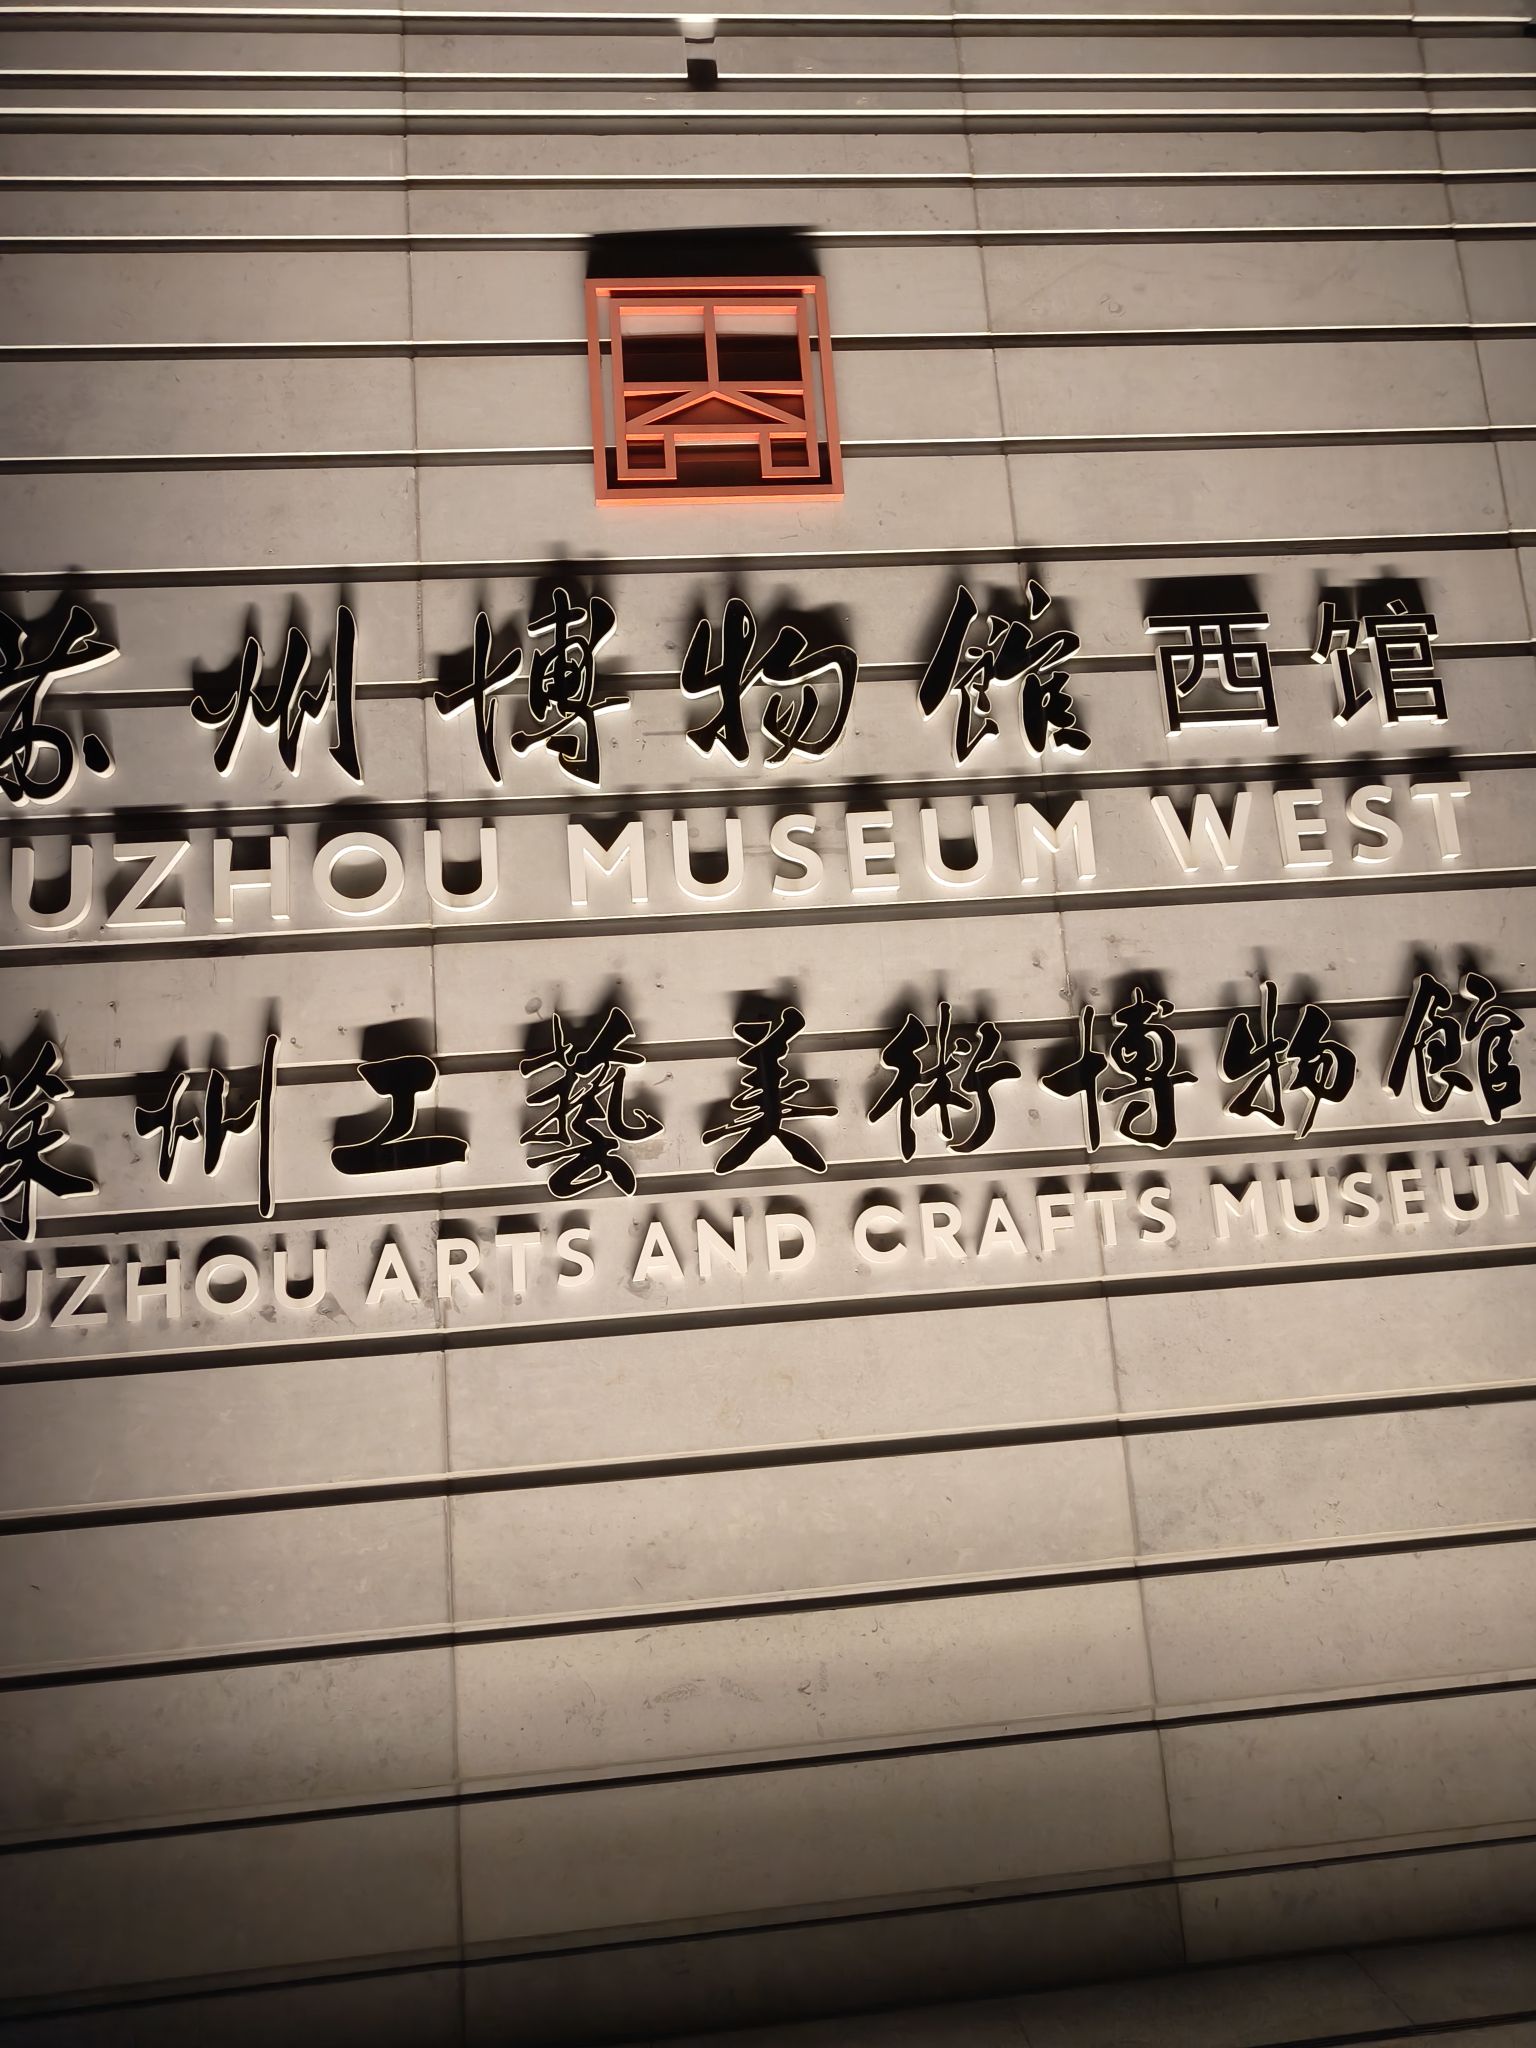 苏州博物館西馆
UZHOU MUSEUM WEST
州工藝美術博物館
UZHOU ARTS AND CRAFTS MUSEUM